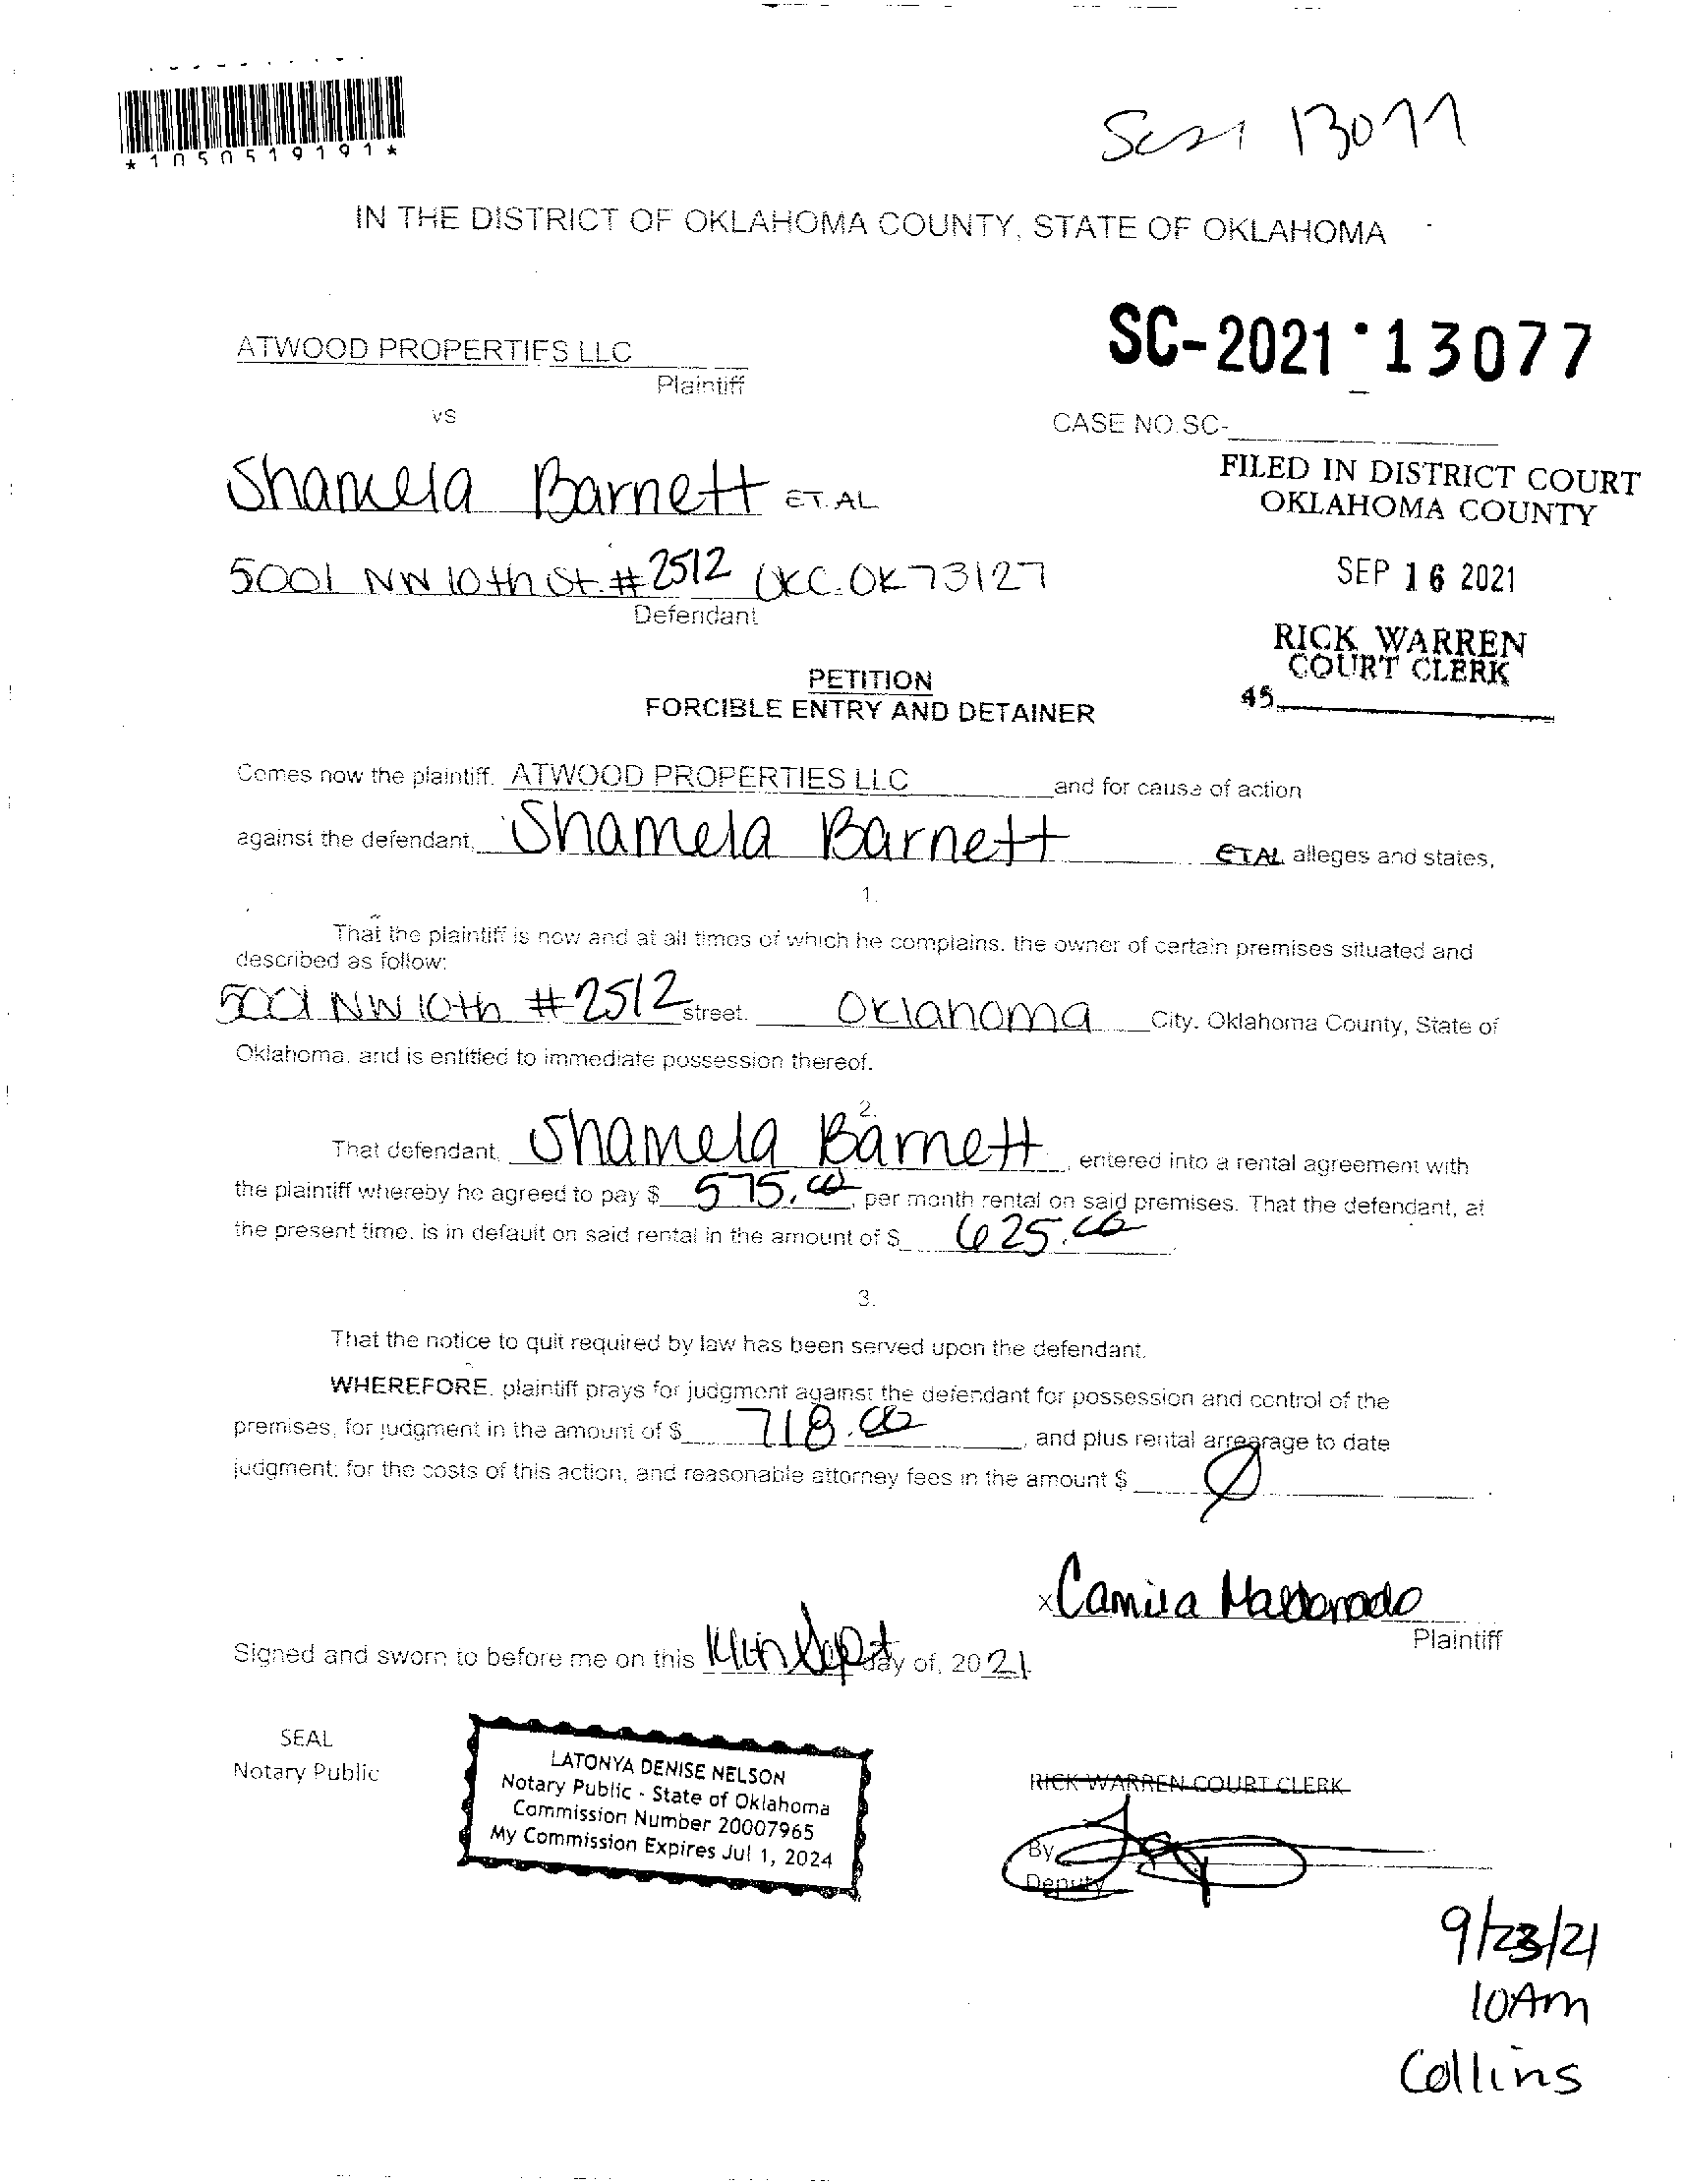 *1050519191*
SC21 13077
IN THE DISTRICT OF OKLAHOMA COUNTY, STATE OF OKLAHOMA
ATWOOD PROPERTIES LLC
Plaintiff
SC-2021-13077
vs
CASE NO.SC-
Shamela Barnett ET.AL
FILED IN DISTRICT COURT
OKLAHOMA COUNTY
5001 NW 10th St. #2512 OKC. OK 73127
Defendant
SEP 16 2021
RICK WARREN
COURT CLERK
45
PETITION
FORCIBLE ENTRY AND DETAINER
Comes now the plaintiff. ATWOOD PROPERTIES LLC and for cause of action
against the defendant, Shamela Barnett ETAL alleges and states,
1.
That the plaintiff is now and at all times of which he complains. the owner of certain premises situated and
described as follow:
5001 NW 10th #2512 street. Oklahoma City. Oklahoma County, State of
Oklahoma. and is entitled to immediate possession thereof.
2.
That defendant, Shamela Barnett, entered into a rental agreement with
the plaintiff whereby he agreed to pay $ 575.00, per month rental on said premises. That the defendant, at
the present time. is in default on said rental in the amount of $ 625.00.
3.
That the notice to quit required by law has been served upon the defendant.
WHEREFORE. plaintiff prays for judgment against the defendant for possession and control of the
premises, for judgment in the amount of $ 718.00, and plus rental arrearage to date
judgment: for the costs of this action, and reasonable attorney fees in the amount $ Ø.
x Camila Maldonado
Plaintiff
Signed and sworn to before me on this Sept day of, 2021.
SEAL
Notary Public
LATONYA DENISE NELSON
Notary Public - State of Oklahoma
Commission Number 20007965
My Commission Expires Jul 1, 2024
RICK WARREN COURT CLERK
By
Deputy
9/23/21
10Am
Collins